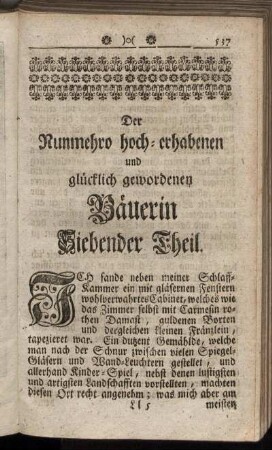 )o(
537
Der
Nunmehro hoch-erhabenen
und
glücklich gewordenen
Bäuerin
Siebender Theil.
ICH fande neben meiner Schlaff-
Kammer ein mit gläsernen Fenstern
wohlverwahrtes Cabinet, welches wie
das Zimmer selbst mit Carmesin ro-
then Damast, guldenen Borten
und dergleichen kleinen Fränßlein,
tapezieret war. Ein dutzent Gemählde, welche
man nach der Schnur zwischen vielen Spiegel-
Gläsern und Wand-Leuchtern gestellet, und
allerhand Kinder-Spiel, nebst denen lustigsten
und artigsten Landschafften vorstellten, machten
diesen Ort recht angenehm; was mich aber am
Ll 5 meisten